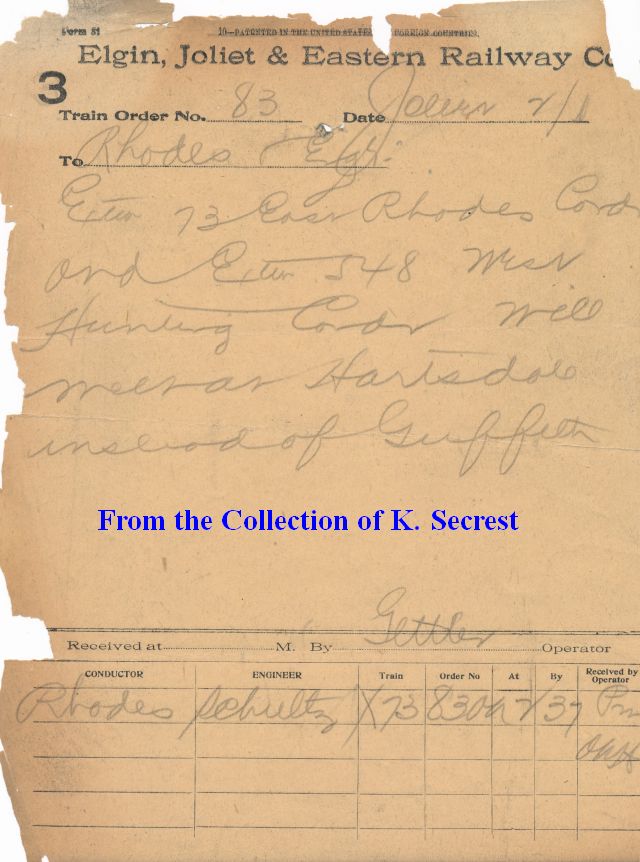 Form 31 10—PATENTED IN THE UNITED STATES FOREIGN COUNTRIES.
Elgin, Joliet & Eastern Railway Co
3
Train Order No. 83 Date 2/1
To Rhodes & Eng.
Extra 73 East Rhodes Condr
and Extra 548 West
Hunting Condr Will
meet at Hartsdale
instead of Griffith
From the Collection of K. Secrest
Received at M. By Gettler Operator
CONDUCTOR ENGINEER Train Order No At By Received by Operator
Rhodes Schultz X73 83